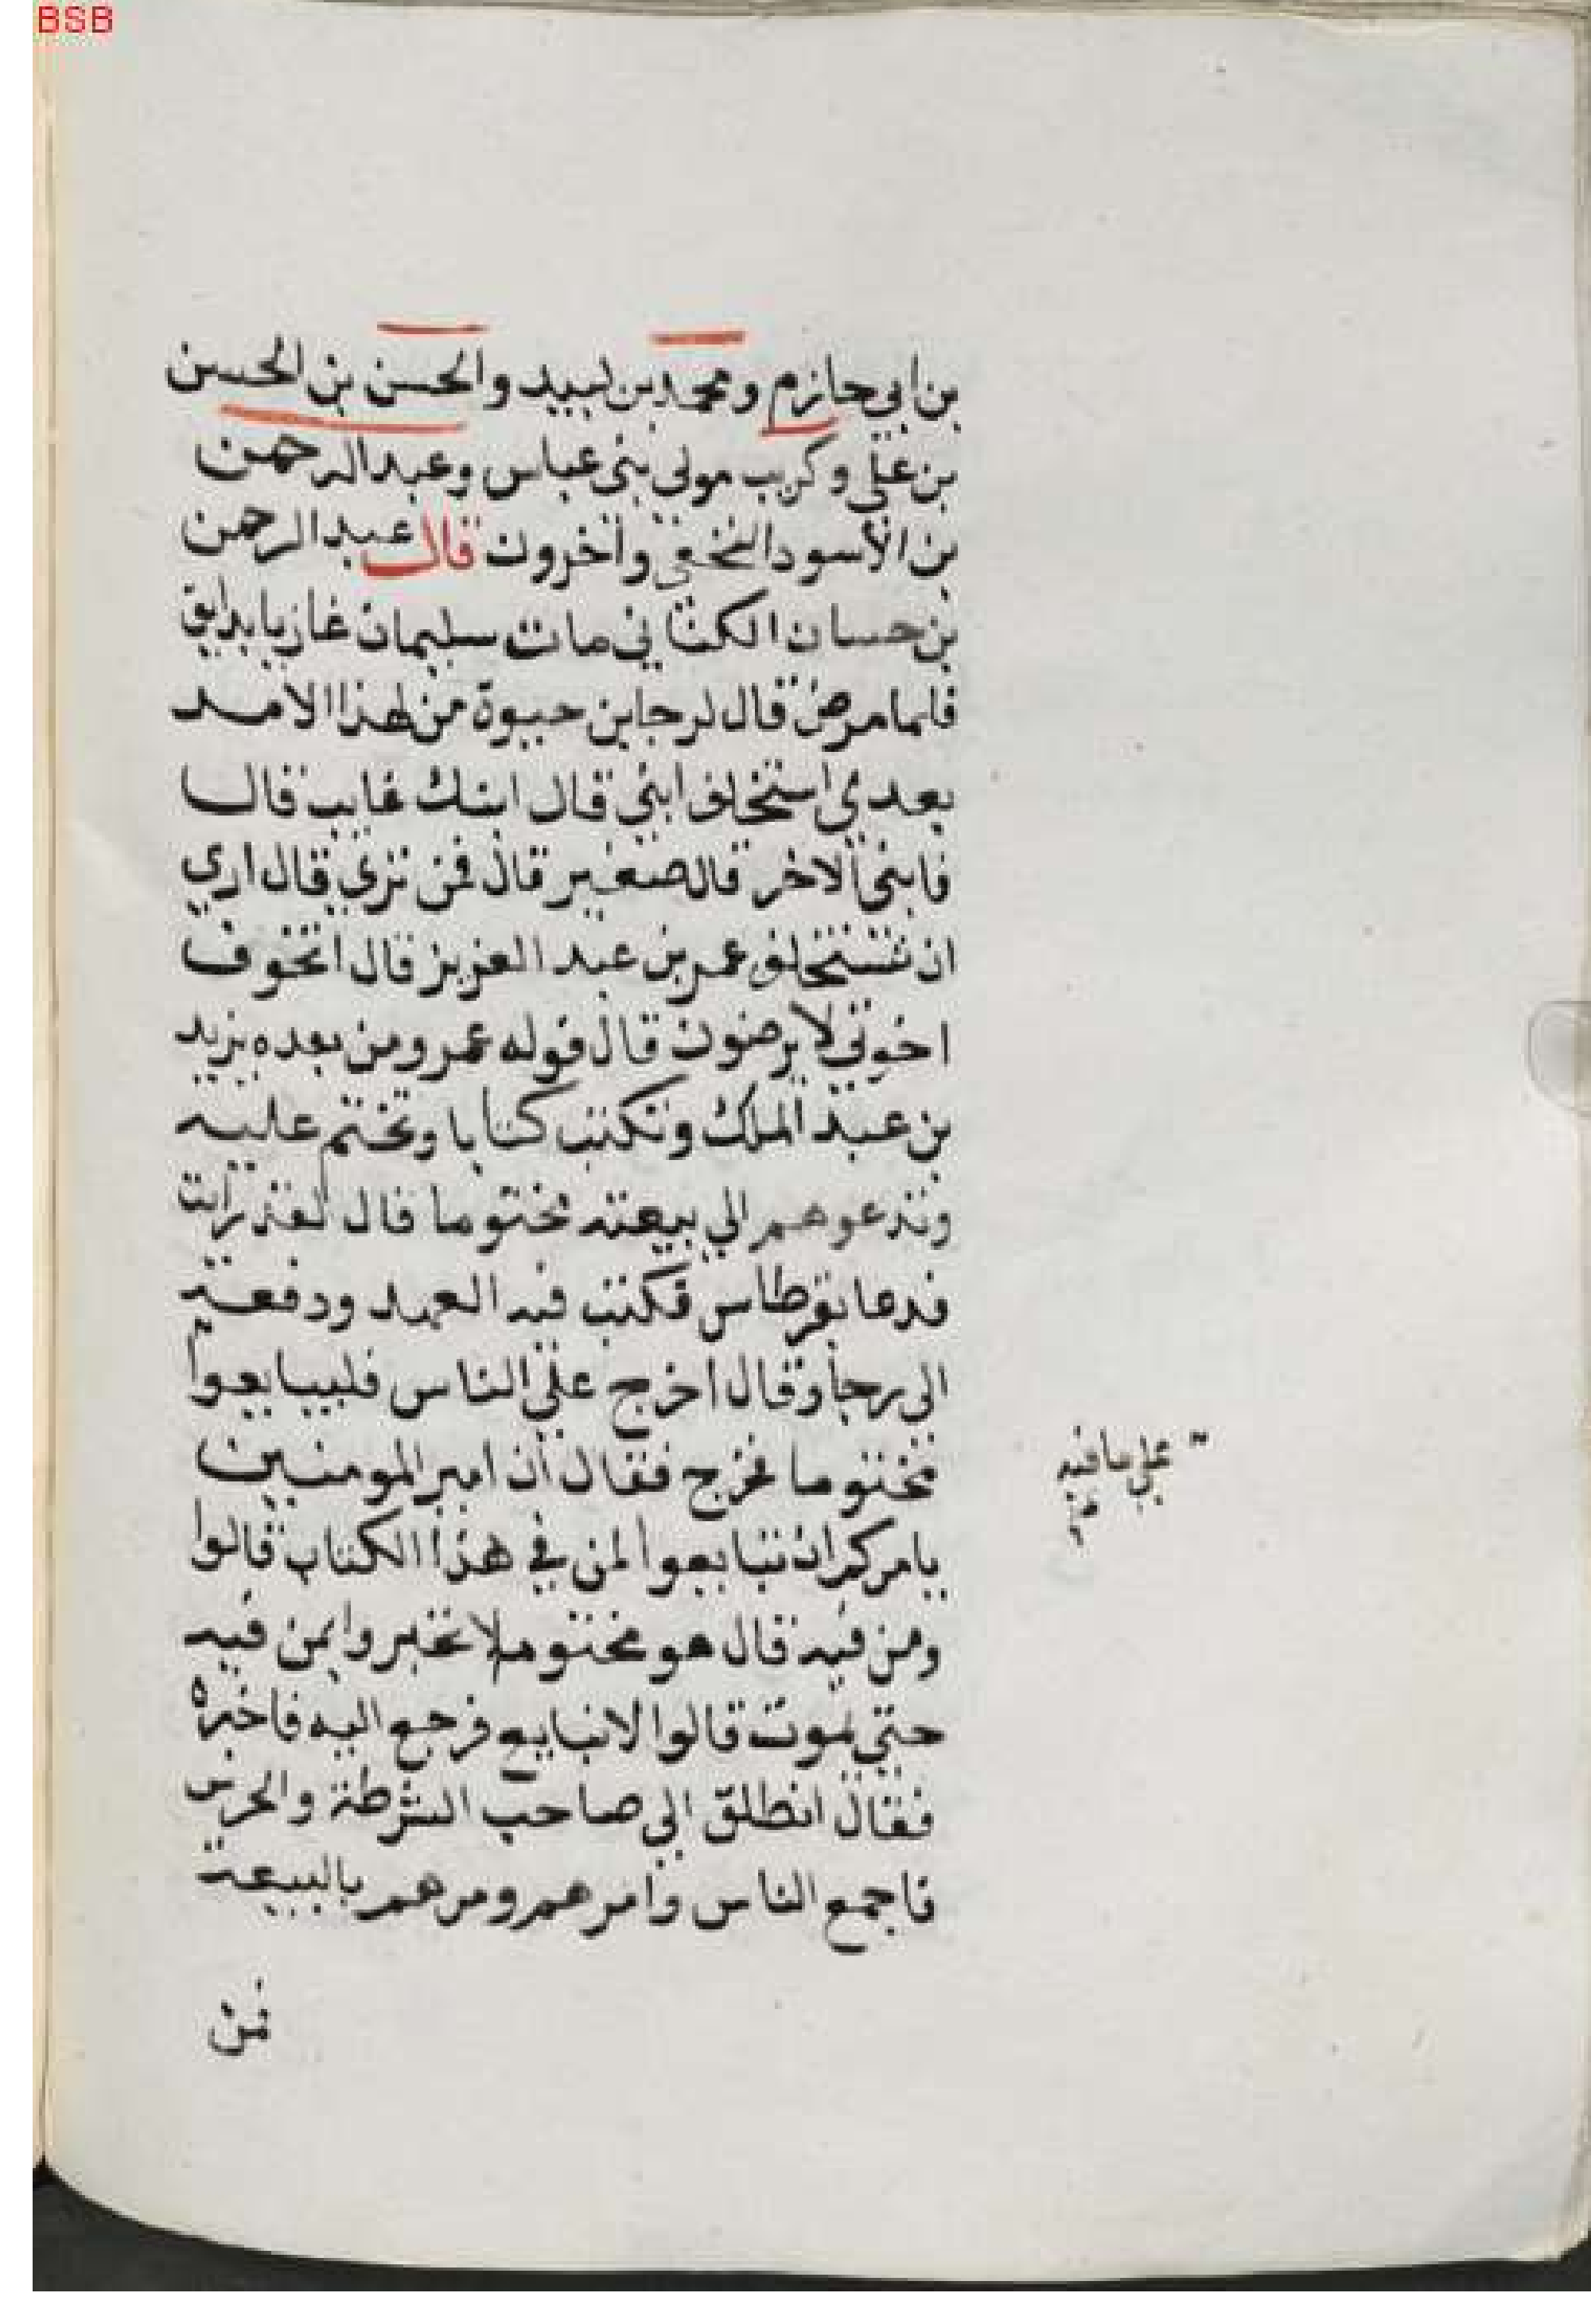 BSB
بن ابي حازم ومحمد بن لبيد والحسن بن الحسن
بن علي وكريب مولي بني عباس وعبد الرحمن
بن الأسود النخعي وآخرون قال عبد الرحمن
بن حسان الكناني مات سليمان غازيا بدابق
فلما مرض قال لرجا بن حيوة من لهذا الامر
بعدي استخلف ابني قال ابنك غايب قال
فابني الاخر قال صغير قال فمن تري قال اري
ان تستخلف عمر بن عبد العزيز قال اتخوف
اخوتي لا يرضون قال فوله عمر ومن بعده يزيد
بن عبد الملك وتكتب كتابا وتختم عليه
وتدعوهم الي بيعته مختوما قال لقد رايت
فدعا بقرطاس فكتب فيه العهد ودفعه
الي رجا وقال اخرج علي الناس فليبايعوا
علي ما فيه
مختوما فخرج فقال ان امير المومنين
يامركم ان تبايعوا لمن في هذا الكتاب قالوا
ومن فيه قال هو مختوم لا تخبروا بمن فيه
حتي يموت قالوا لا نبايع فرجع اليه فاخبره
فقال انطلق الي صاحب الشرطة والحرس
فاجمع الناس وامرهم ومرهم بالبيعة
فمن